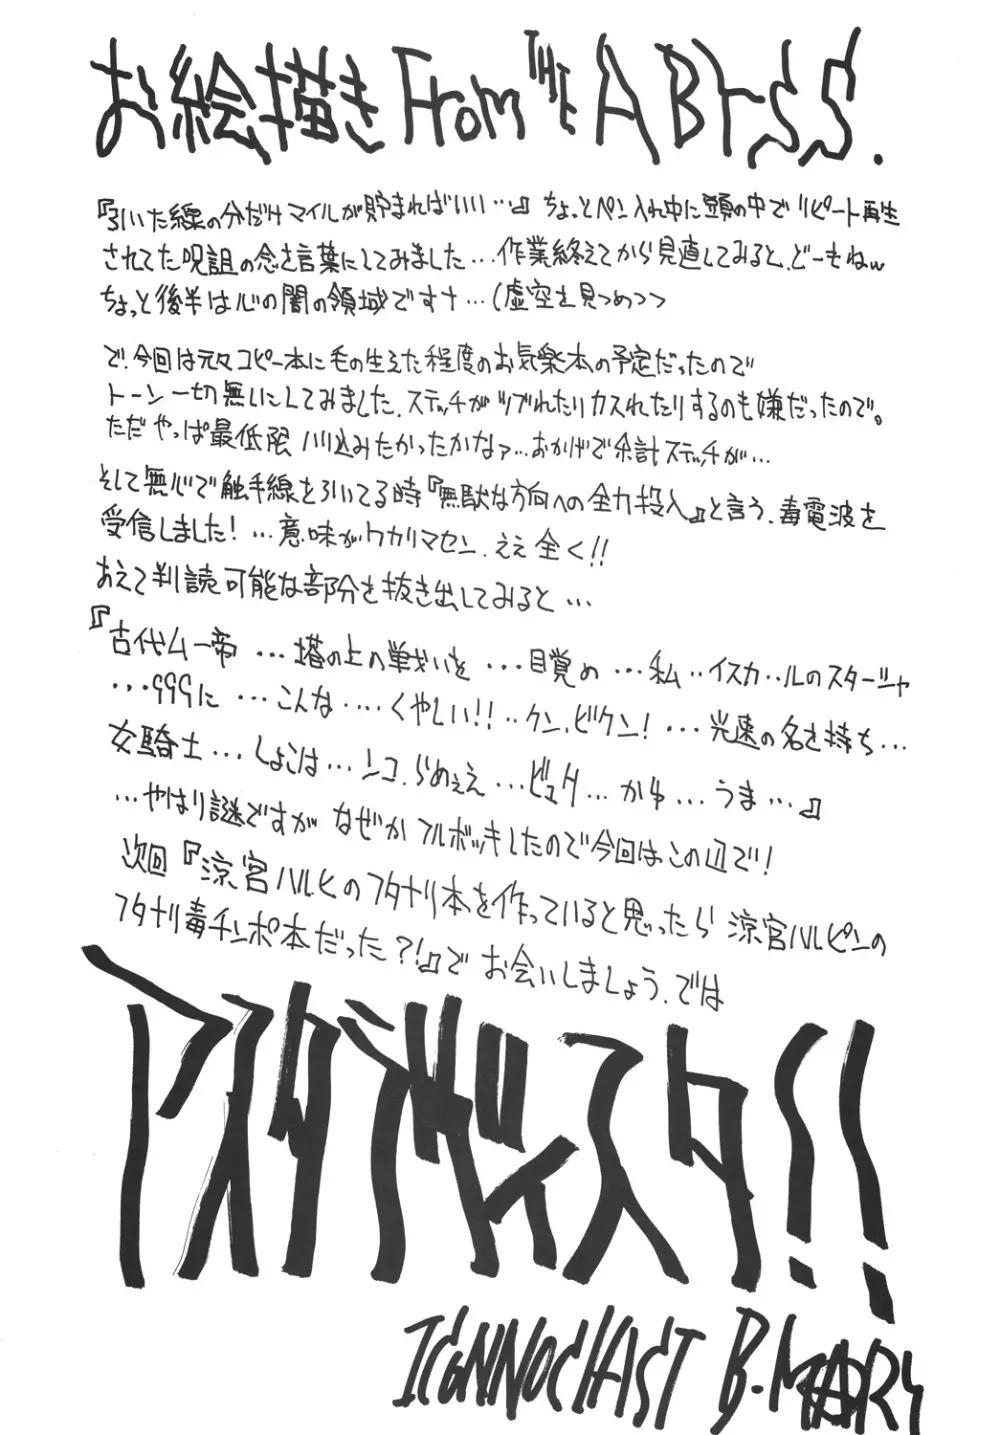 お絵描き From THE ABYSS.
『引いた線の分だけマイルが貯まればいい…』ちょっとペン入れ中に頭の中でリピート再生
されてた呪詛の念を言葉にしてみました…作業終えてから見直してみると、どーもねw
ちょっと後半は心の闇の領域ですナ…(虚空を見つめつつ
で、今回は元々コピー本に毛の生えた程度のお気楽本の予定だったので
トーン一切無しにしてみました、ステッチがツブれたりカスれたりするのも嫌だったので。
ただやっぱ最低限ハリ込みたかったかなァ…おかげで余計ステッチが…
そして無心で触手線を引いてる時『無駄な方向への全力投入』と言う、毒電波を
受信しました!…意味がワカリマセン、ええ全く!!
あえて判読可能な部分を抜き出してみると…
『古代ムー帝…塔の上の戦いを…目覚め…私‥イスカ‥ルのスタージャ
…999に…こんな‥‥くやしい!!‥クン、ビクン!…光速の名を持ち…
女騎士…しょこは…ンコ、らめぇえ…ビュタ…かゆ…うま…』
…やはり謎ですがなぜかフルボッキしたので今回はこの辺で!
次回『涼宮ハルヒのフタナリ本を作っていると思ったら涼宮ハルピンの
フタナリ毒チンポ本だった?!』でお会いしましょう、では
アスタラビスタ!!
ICONNOCLAST B-MARY